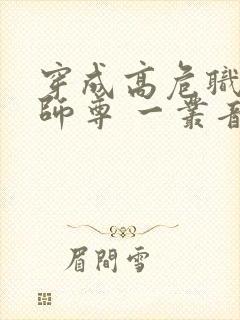 穿成高危職
師尊 一叢音
眉間雪